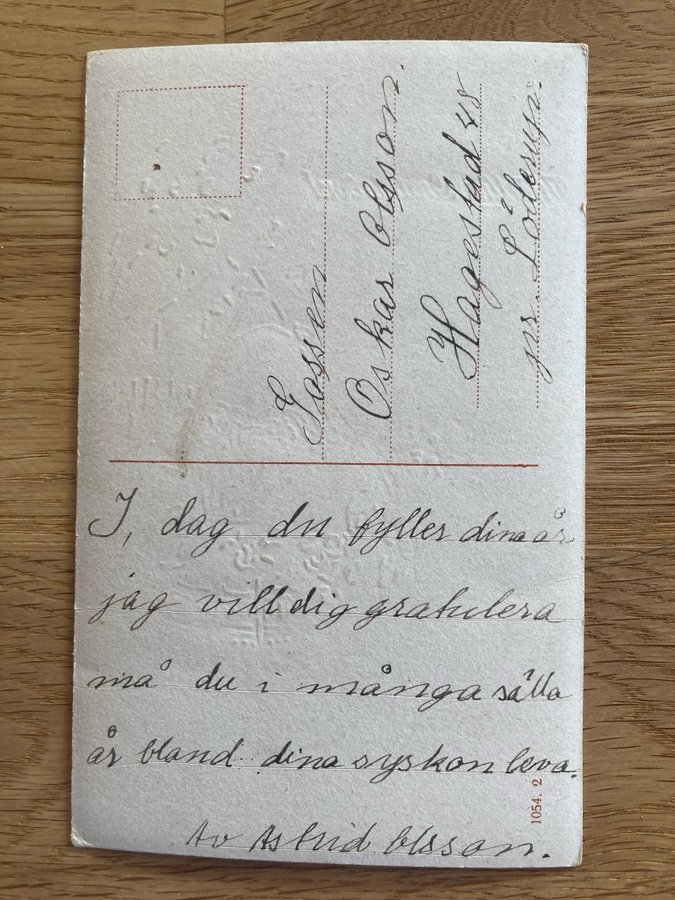 Gossen
Oskar Olsson.
Hagestad 48
pr. Löderup.
I, dag du fyller dina år
jag vill dig gratulera
må du i många sälla
år bland dina syskon leva.
Av Astrid Olsson.
1054. 2